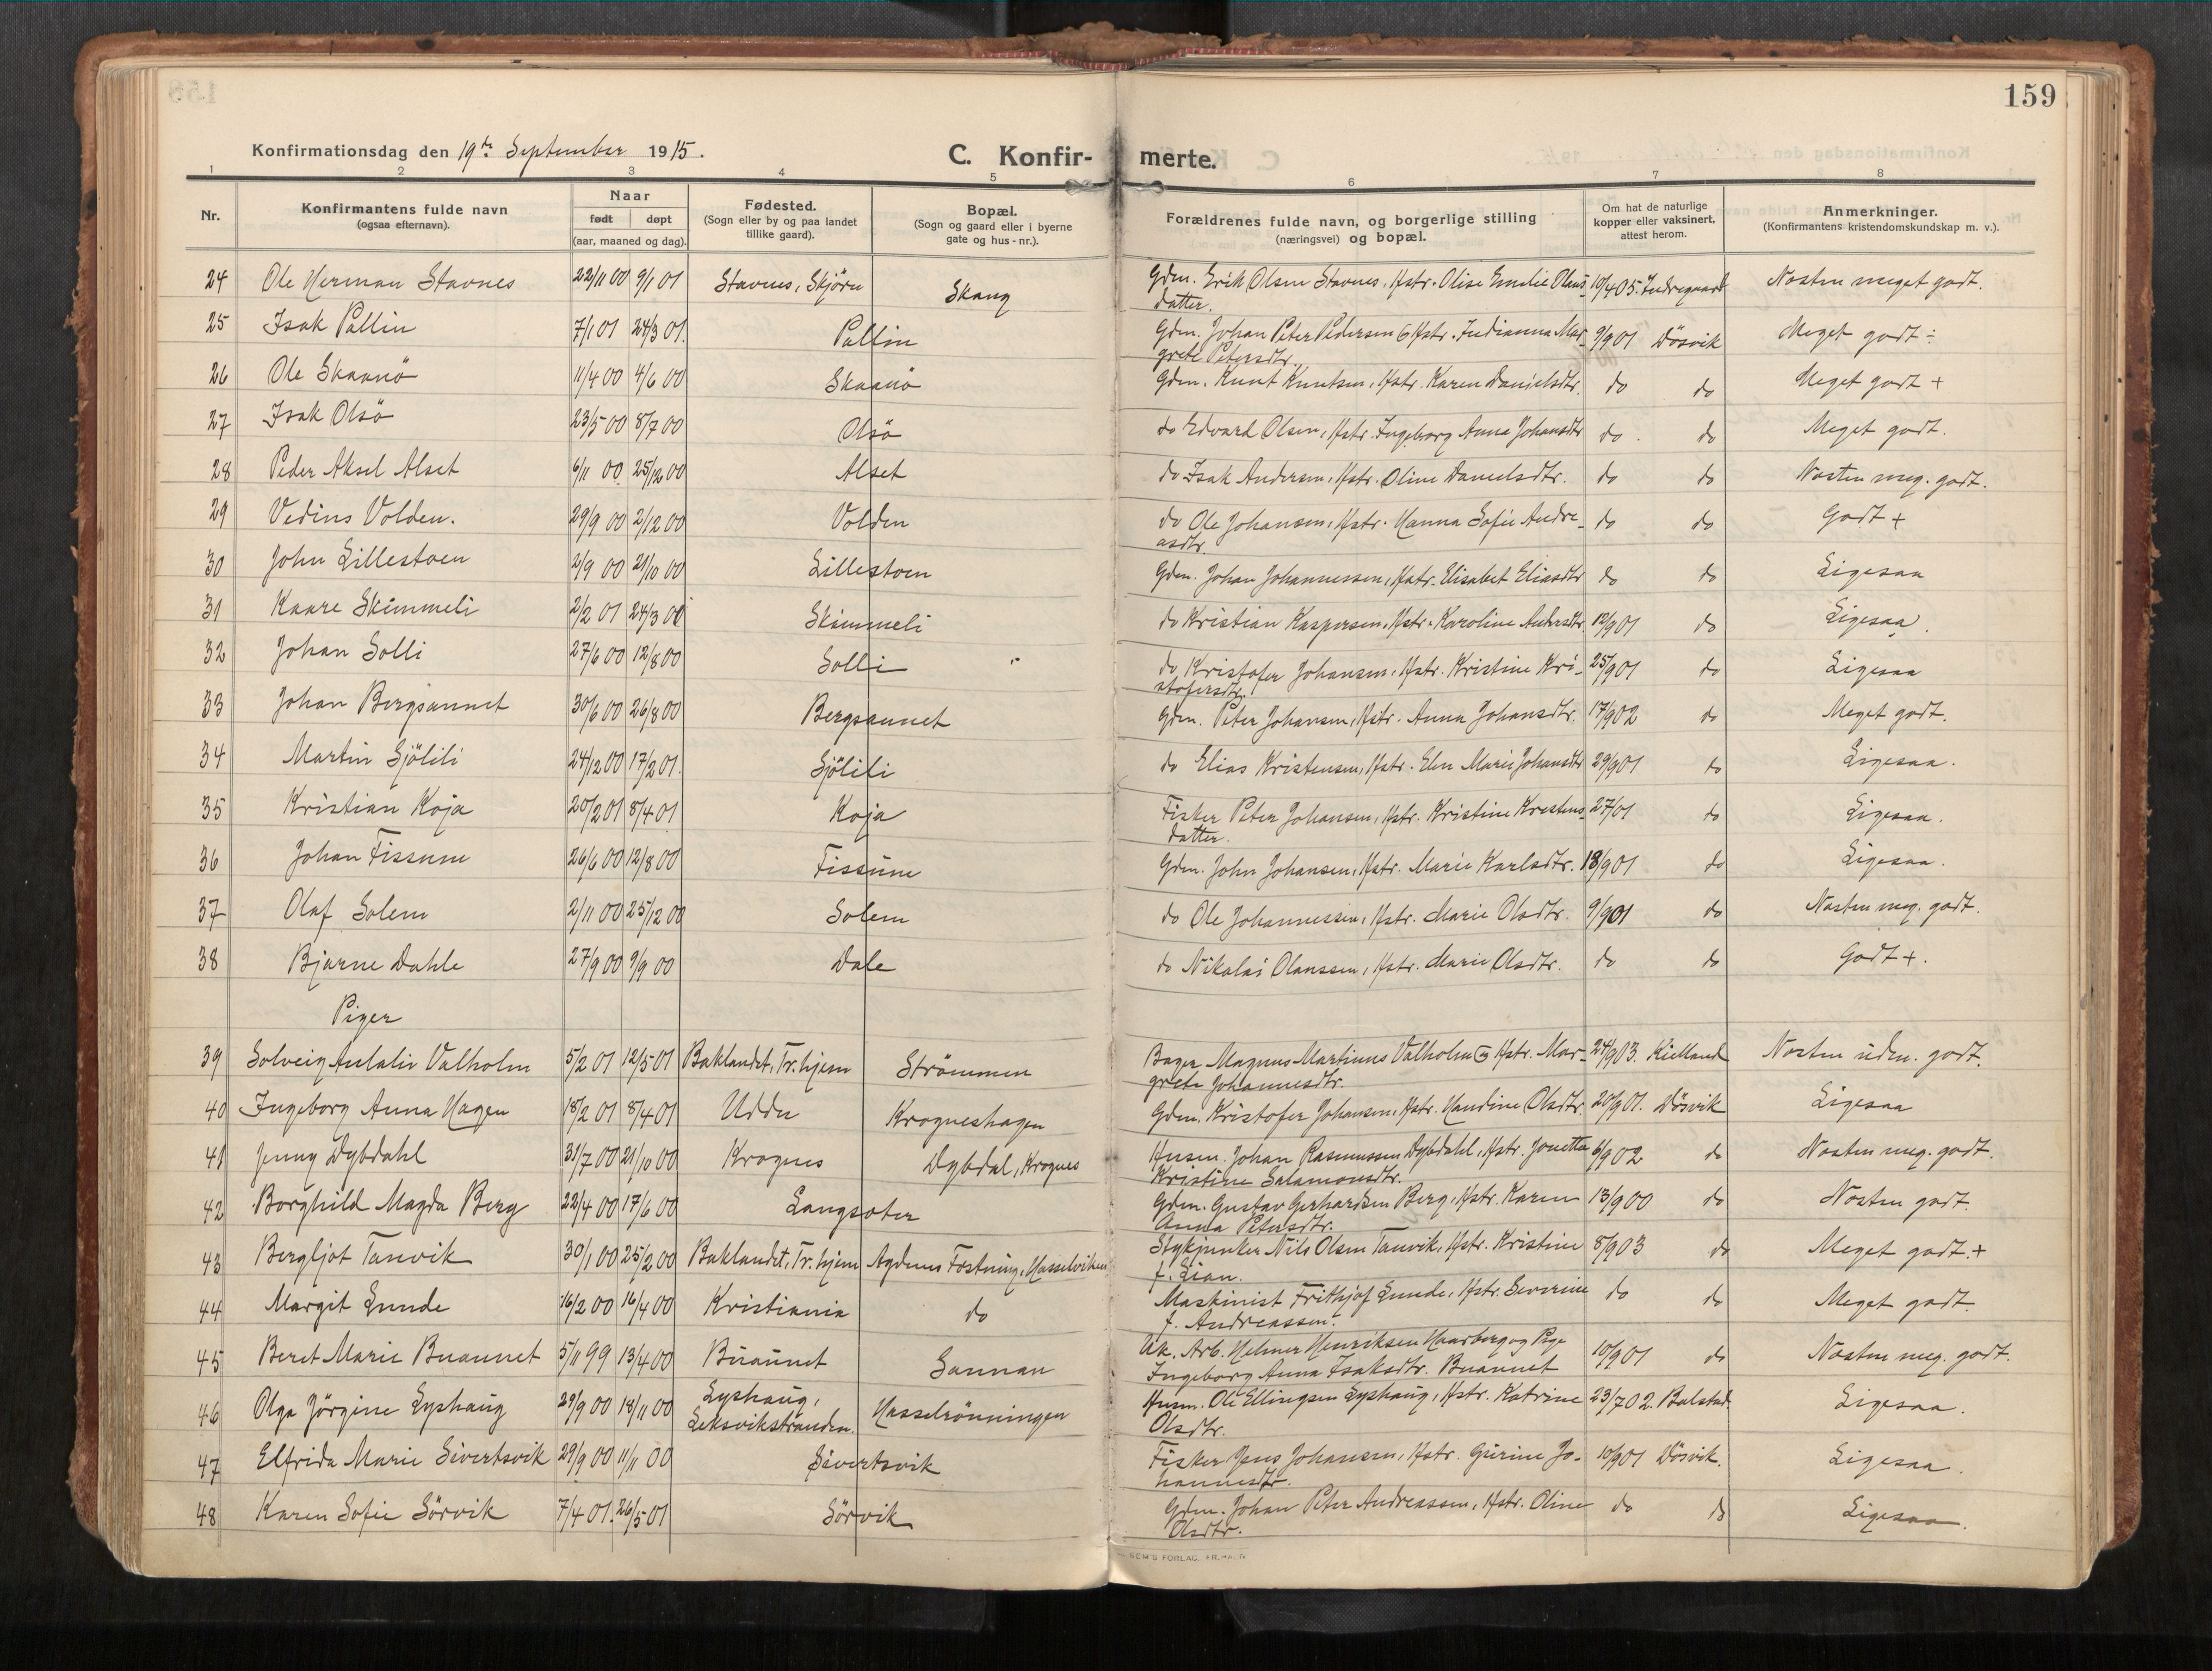 159
Konfirmationsdag den 19de September 1915.
C. Konfir- merte.
1 2 3 4 5 6 7 8
Nr.
Konfirmantens fulde navn
(ogsaa efternavn).
Naar
født døpt
(aar, maaned og dag).
Fødested.
(Sogn eller by og paa landet
tillike gaard).
Bopæl.
(Sogn og gaard eller i byerne
gate og hus-nr.).
Forældrenes fulde navn, og borgerlige stilling
(næringsvei) og bopæl.
Om hat de naturlige
kopper eller vaksinert,
attest herom.
Anmerkninger.
(Konfirmantens kristendomskundskap m. v.).
24 Ole Herman Stavnes 22/11 00 9/1 01 Stavnes, Skjörn Skang Gdm. Erik Olsen Stavnes, Hstr. Olise Emelie Olaus- 10/4 05. Indregaard Næsten meget godt.
datter.
25 Isak Pallin 7/1 01 24/3 01. Pallin Gdm. Johan Peter Pedersen & Hstr. Indianna Mar- 9/9 01 Dösvik Meget godt ÷
grete Petersdtr.
26 Ole Skaanö 11/4 00 4/6 00 Skaanö Gdm. Knut Knutsen, Hstr. Karen Danielsdtr. do do Meget godt +
27 Isak Olsö 23/5 00 8/7 00 Olsö do Edvard Olsen, Hstr. Ingeborg Anna Johansdtr do. do Meget godt.
28 Peder Aksel Alset 6/11 00 25/12 00 Alset do Isak Andersen, Hstr. Oline Danielsdtr. do do Næsten meg. godt.
29 Vedins Volden. 29/9 00 2/12 00 Volden do Ole Johansen, Hstr. Hanna Sofie Andre- do do Godt +
asdtr.
30 John Lillestoen 2/9 00 21/10 00 Lillestoen Gdm. Johan Johannessen, Hstr. Elisabet Eliasdtr do do Ligesaa
31 Kaare Skimmeli 2/2 01 24/3 00 Skimmeli do Kristian Kaspersen, Hstr. Karoline Andersdtr. 12/9 01 do Ligesaa.
32 Johan Solli 27/6 00 12/8 00 Solli do Kristofer Johansen, Hstr. Kristine Kri- 25/9 01 do Ligesaa
stofersdtr.
33 Johan Bergsaunet 30/6 00 26/8 00 Bergsaunet Gdm. Peter Johansen, Hstr. Anna Johansdtr. 17/9 02 do Meget godt.
34 Martin Sjölili 24/12 00 17/2 01. Sjölili do Elias Kristensen, Hstr. Elen Marie Johansdtr 29/9 01 do Ligesaa.
35 Kristian Koja 20/2 01 8/4 01 Koja Fisker Peter Johansen, Hstr. Kristine Kristens- 27/01 do Ligesaa.
datter.
36 Johan Fissum 26/6 00 12/8 00 Fissum Gdm. John Johansen, Hstr. Marie Karlsdtr. 18/9 01 do Ligesaa.
37 Olaf Solem 2/11 00 25/12 00 Solem do Ole Johannessen, Hstr. Marie Olsdtr. 9/9 01 do Næsten meg. godt.
38 Bjarne Dahle 27/9 00 9/9 00 Dale do Nikolai Olaussen, Hstr. Marie Olsdtr. do do Godt +.
Piger
39 Solveig Aulalie Valholm 5/2 01 12/5 01 Baklandet, Tr.hjem Strömmen Bager Magnus Martinus Valholm og Hstr. Mar- 24/9 03. Kielland Næsten uden. godt.
grete Johannesdtr.
40 Ingeborg Anna Hagen 18/2 01 8/4 01 Uddu Krogneshagen Gdm. Kristofer Johansen, Hstr. Haudine Olsdtr. 20/9 01. Dösvik Ligesaa
41 Jenny Dybdahl 31/7 00 21/10 00 Krognes Dybdal, Krognes Husm. Johan Rasmussen Dybdahl, Hstr. Jonetta 6/9 02 do Næsten meg. godt.
Kristine Salamonsdtr.
42 Borghild Magda Berg 22/4 00 17/6 00 Langsæter Gdm. Gustav Gerhardsen Berg, Hstr. Karen 13/9 00 do Næsten godt.
Anna Petersdtr.
43 Bergljot Tanvik 30/1 00 25/2 00 Baklandet, Tr.hjem Agdenes Fæstning, Hasselviken Stykjunker Nils Olsen Tanvik, Hstr. Kristine 8/9 03 do Meget godt.+
f. Lian.
44 Margit Lunde 16/2 00 16/4 00 Kristiania do Maskinist Frithjof Lunde, Hstr. Severine do do Meget godt.
f. Andreassen.
45 Beret Marie Buaunet 5/11 99 13/4 00 Buaunet Sannan Uk. Arb. Helmer Henriksen Haarberg og Pige 10/9 01 do Næsten meg. godt.
Ingeborg Anna Isaksdtr. Buaunet
46 Olga Jörgine Lyshaug 29/9 00 18/11 00 Lyshaug, Hasselrönningen Husm. Ole Ellingsen Lyshaug, Hstr. Katrine 23/7 02. Balstad Ligesaa.
Leksvikstranden. Olsdtr.
47 Elfrida Marie Sivertsvik 29/9 00 11/11 00 Sivertsvik Fisker Jens Johansen, Hstr. Gurine Jo- 10/9 01 Dösvik. Ligesaa.
hannesdtr.
48 Karen Sofie Sörvik 7/4 01. 26/5 01 Sörvik Gdm. Johan Peter Andreassen, Hstr. Oline do do Ligesaa.
Olsdtr.
SEM'S FORLAG, FR.HALD